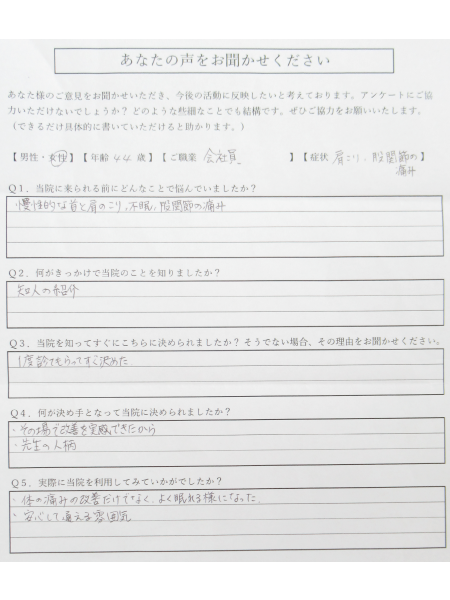 あなたの声をお聞かせください
あなた様のご意見をお聞かせいただき、今後の活動に反映したいと考えております。アンケートにご協
力いただけないでしょうか？ どのような些細なことでも結構です。ぜひご協力をお願いいたします。
（できるだけ具体的に書いていただけると助かります。）
【男性・女性】【年齢 44 歳】【ご職業 会社員 】【症状 肩こり、股関節の】
痛み
Q1．当院に来られる前にどんなことで悩んでいましたか？
・慢性的な首と肩のこり、不眠、股関節の痛み
Q2．何がきっかけで当院のことを知りましたか？
知人の紹介
Q3．当院を知ってすぐにこちらに決められましたか？ そうでない場合、その理由をお聞かせください。
1度診てもらってすぐ決めた
Q4．何が決め手となって当院に決められましたか？
・その場で改善を実感できたから
・先生の人柄
Q5．実際に当院を利用してみていかがでしたか？
・体の痛みの改善だけでなく、よく眠れる様になった
・安心して通える雰囲気